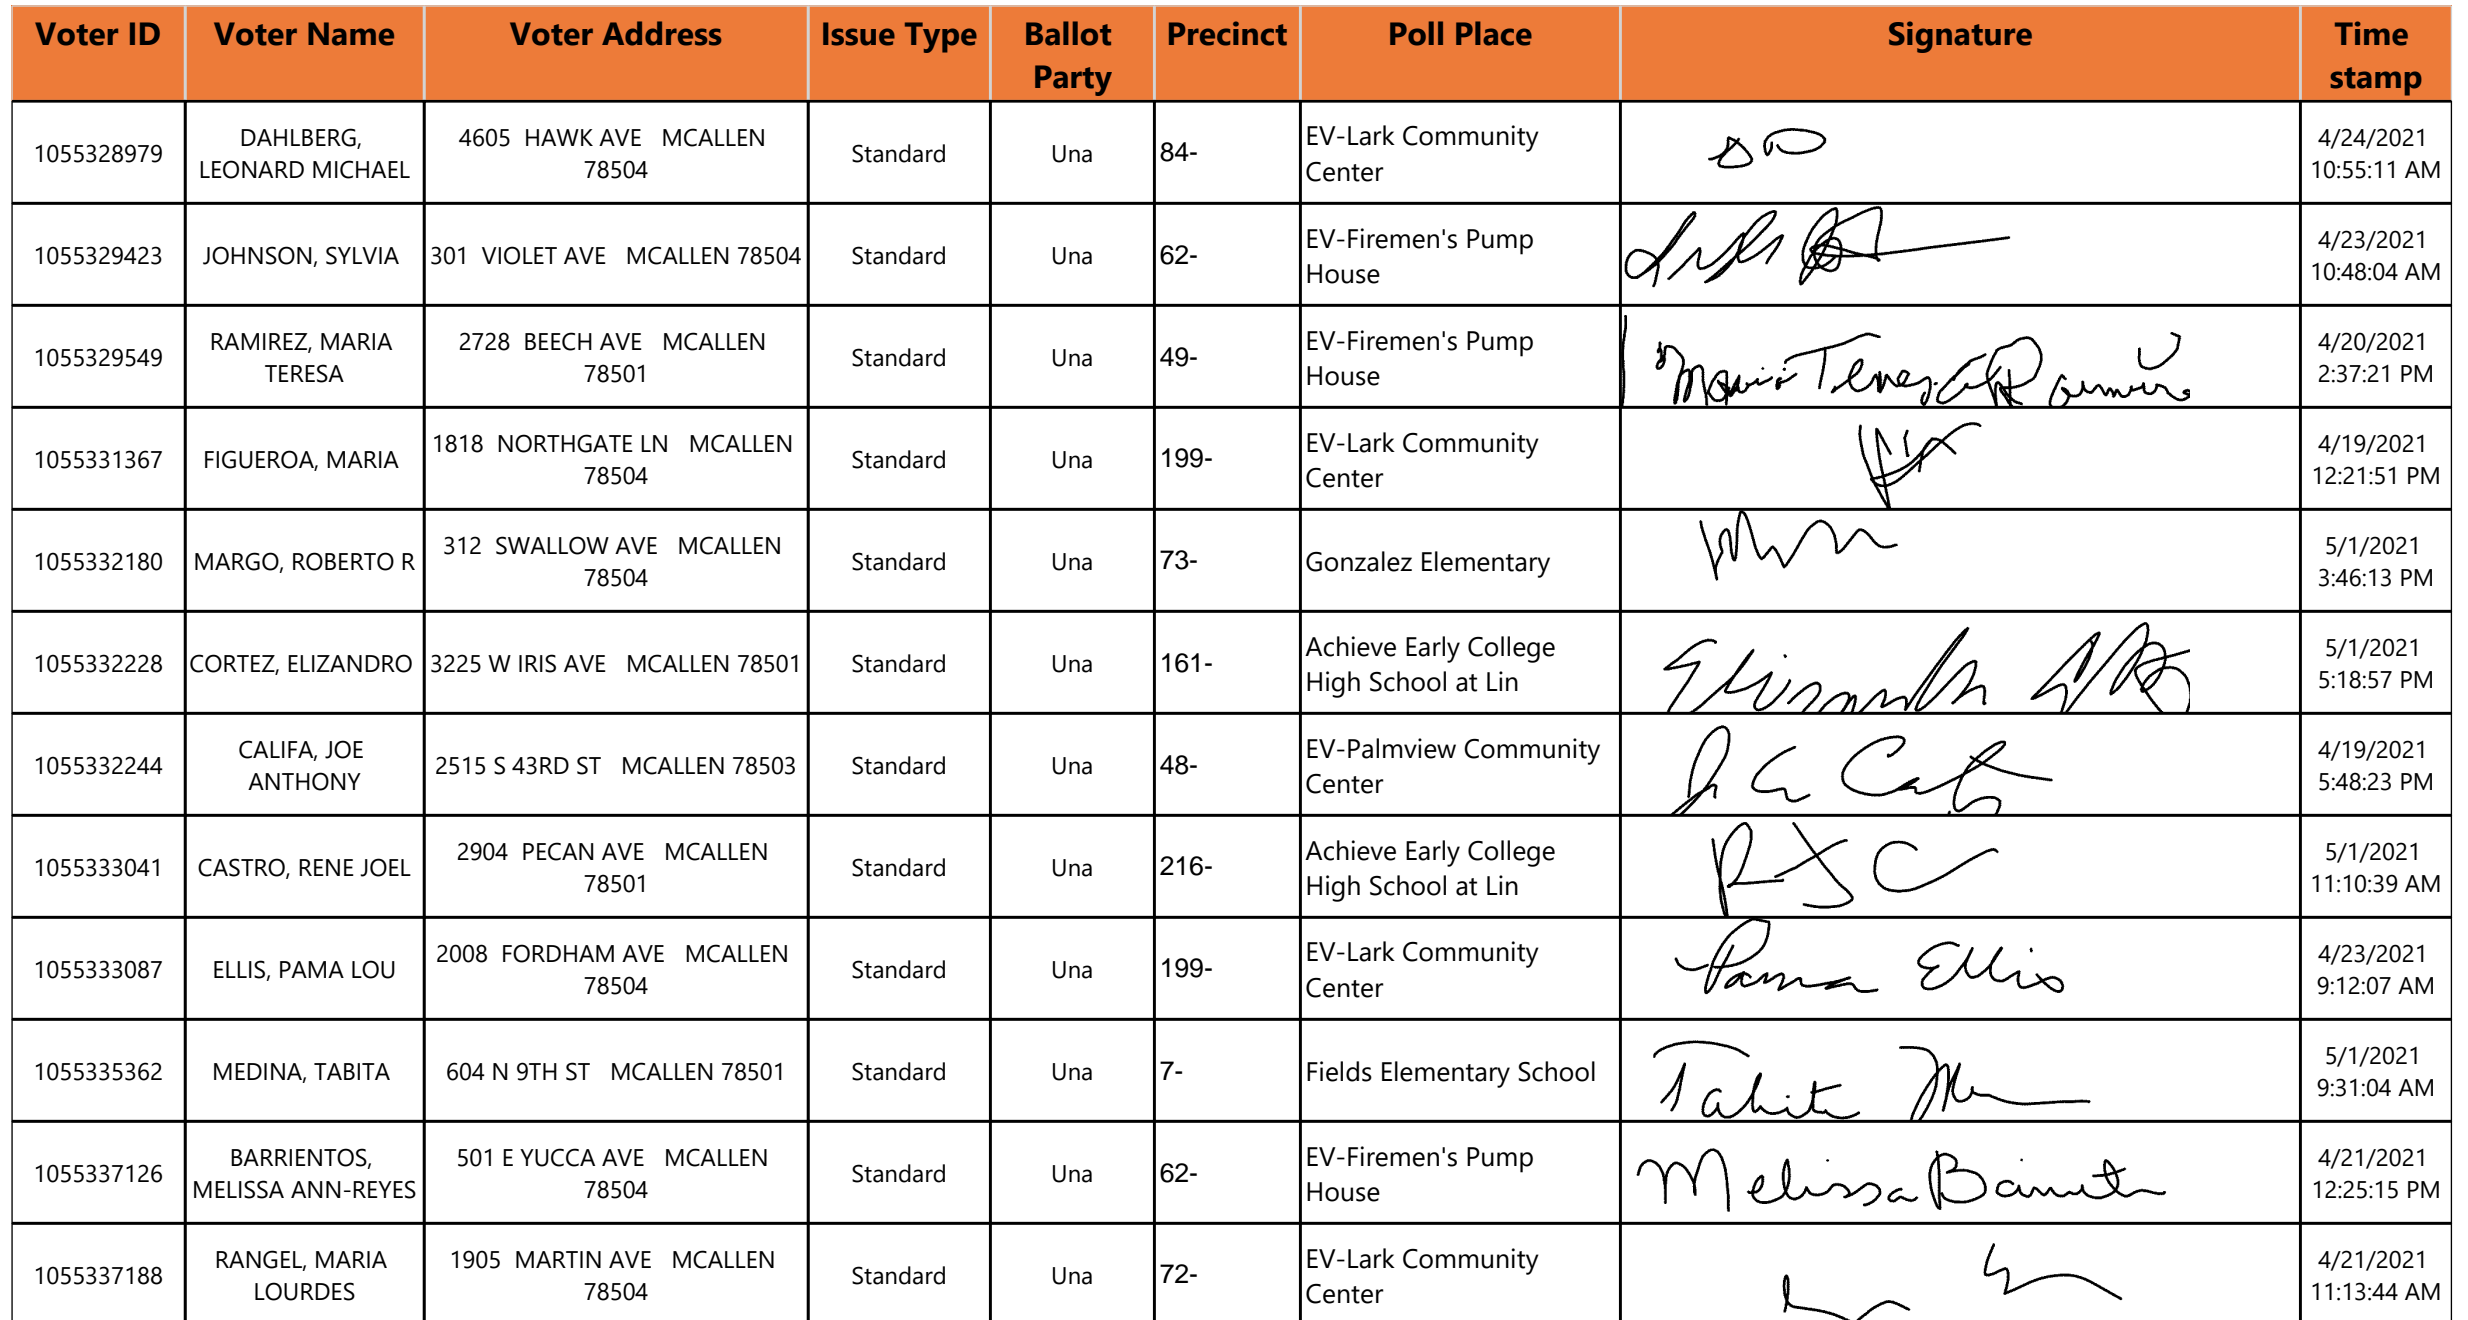 Voter ID Voter Name Voter Address Issue Type Ballot Party Precinct Poll Place Signature Time stamp
1055328979 DAHLBERG, LEONARD MICHAEL 4605 HAWK AVE MCALLEN 78504 Standard Una 84- EV-Lark Community Center 4/24/2021 10:55:11 AM
1055329423 JOHNSON, SYLVIA 301 VIOLET AVE MCALLEN 78504 Standard Una 62- EV-Firemen's Pump House 4/23/2021 10:48:04 AM
1055329549 RAMIREZ, MARIA TERESA 2728 BEECH AVE MCALLEN 78501 Standard Una 49- EV-Firemen's Pump House Maria Teresa 4/20/2021 2:37:21 PM
1055331367 FIGUEROA, MARIA 1818 NORTHGATE LN MCALLEN 78504 Standard Una 199- EV-Lark Community Center 4/19/2021 12:21:51 PM
1055332180 MARGO, ROBERTO R 312 SWALLOW AVE MCALLEN 78504 Standard Una 73- Gonzalez Elementary 5/1/2021 3:46:13 PM
1055332228 CORTEZ, ELIZANDRO 3225 W IRIS AVE MCALLEN 78501 Standard Una 161- Achieve Early College High School at Lin 5/1/2021 5:18:57 PM
1055332244 CALIFA, JOE ANTHONY 2515 S 43RD ST MCALLEN 78503 Standard Una 48- EV-Palmview Community Center 4/19/2021 5:48:23 PM
1055333041 CASTRO, RENE JOEL 2904 PECAN AVE MCALLEN 78501 Standard Una 216- Achieve Early College High School at Lin RJC 5/1/2021 11:10:39 AM
1055333087 ELLIS, PAMA LOU 2008 FORDHAM AVE MCALLEN 78504 Standard Una 199- EV-Lark Community Center Pama Ellis 4/23/2021 9:12:07 AM
1055335362 MEDINA, TABITA 604 N 9TH ST MCALLEN 78501 Standard Una 7- Fields Elementary School Tabita 5/1/2021 9:31:04 AM
1055337126 BARRIENTOS, MELISSA ANN-REYES 501 E YUCCA AVE MCALLEN 78504 Standard Una 62- EV-Firemen's Pump House Melissa 4/21/2021 12:25:15 PM
1055337188 RANGEL, MARIA LOURDES 1905 MARTIN AVE MCALLEN 78504 Standard Una 72- EV-Lark Community Center 4/21/2021 11:13:44 AM